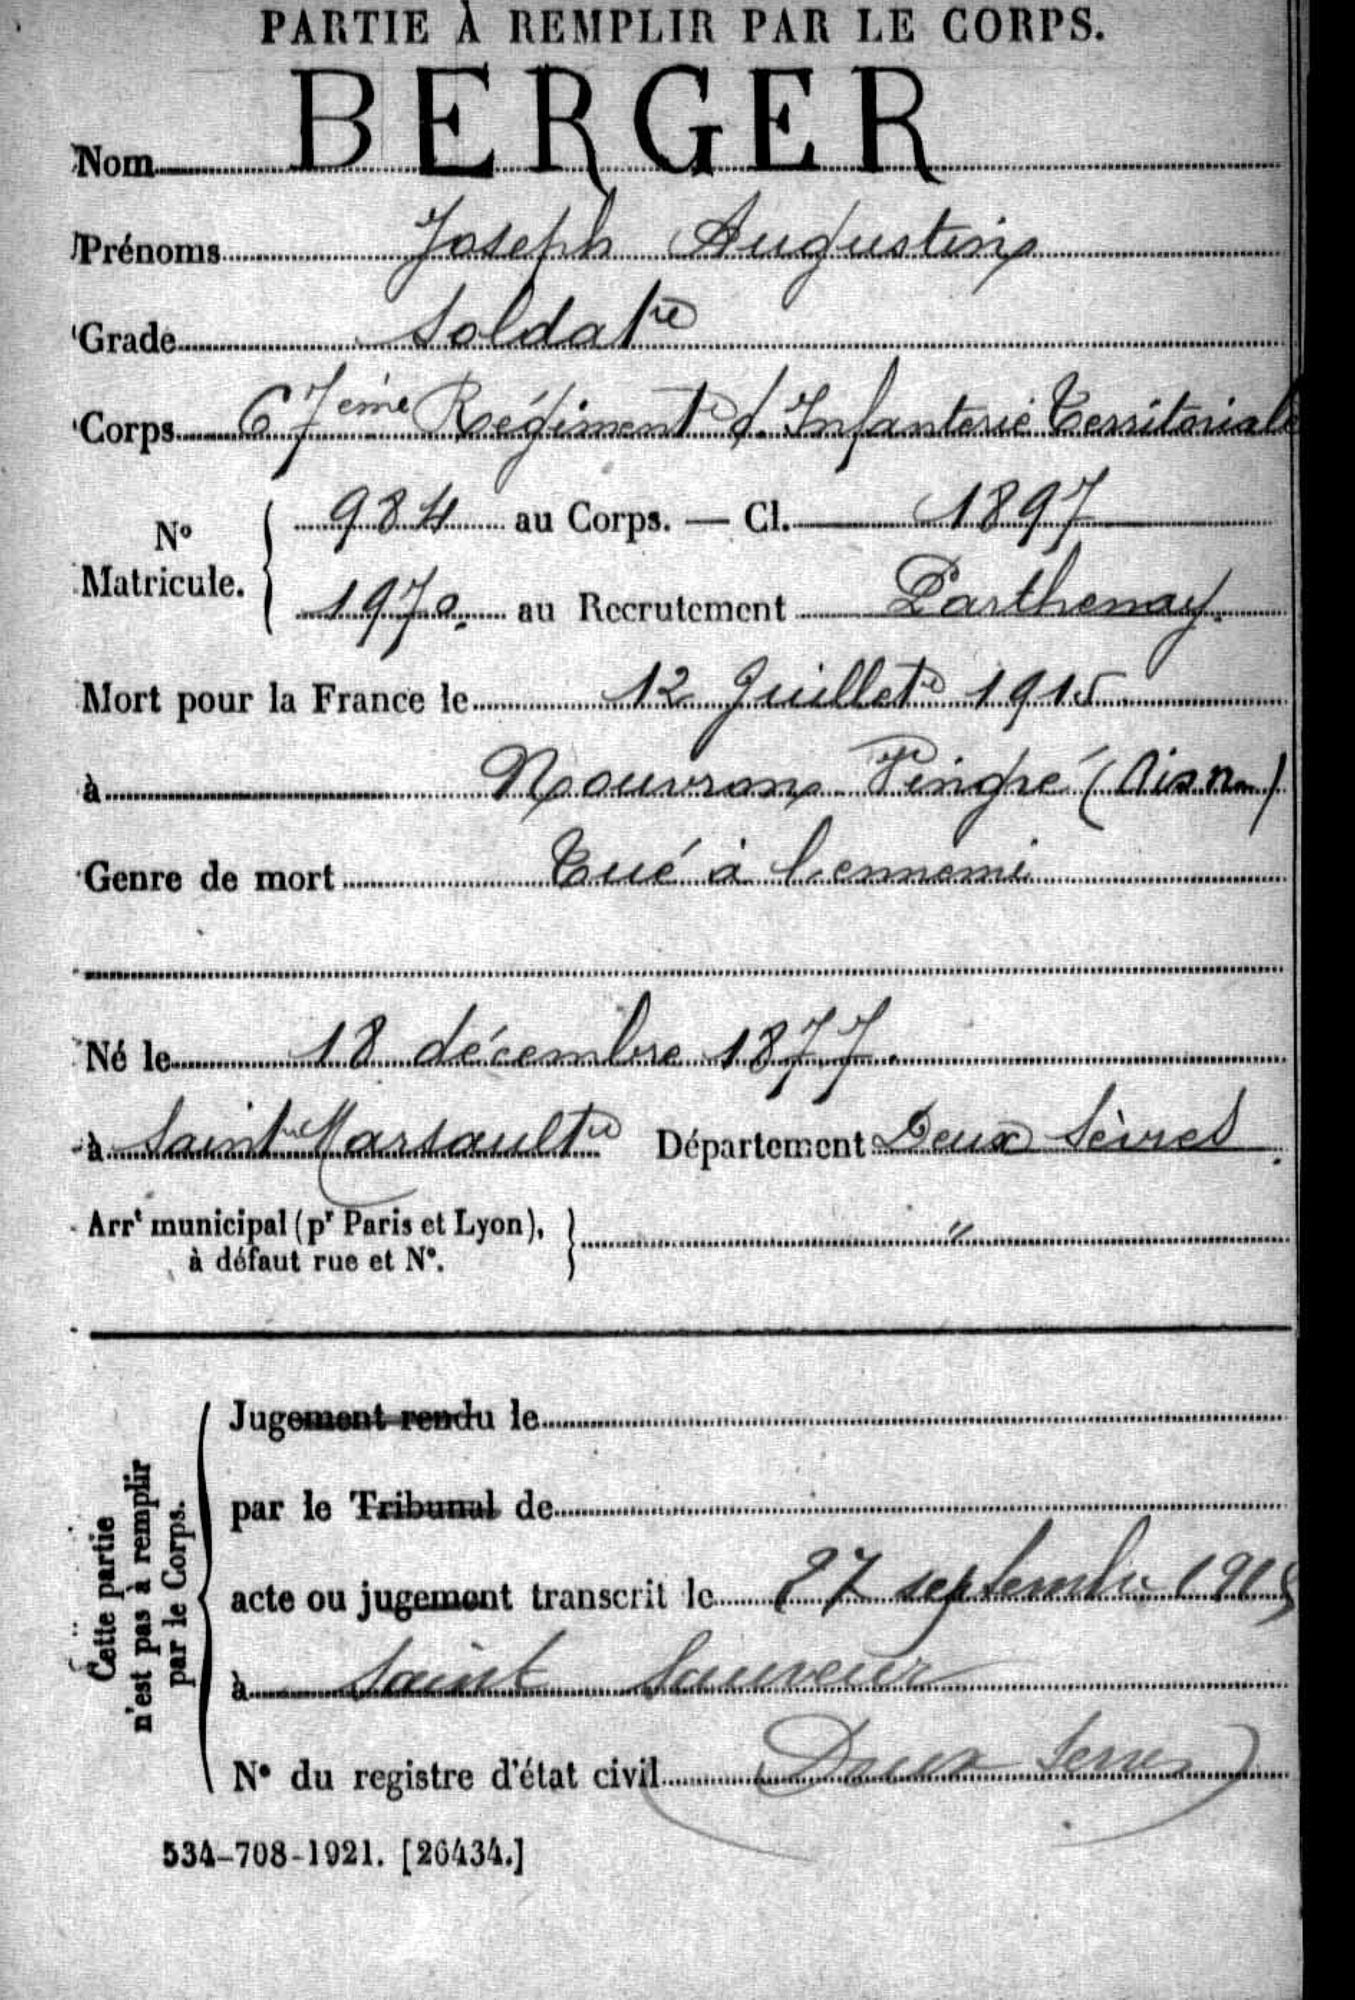 PARTIE À REMPLIR PAR LE CORPS.
Nom BERGER
Prénoms Joseph Augustin
Grade Soldat
Corps 67ème Régiment d'Infanterie Territoriale
N° Matricule. 984 au Corps. — Cl. 1897
1970. au Recrutement Parthenay.
Mort pour la France le 12 Juillet 1915
à Nouvron Vingré (Aisne)
Genre de mort Tué à l'ennemi
Né le 18 décembre 1877.
à Saint Marsault Département Deux Sèvres
Arrt municipal (pr Paris et Lyon), "
à défaut rue et N°.
Cette partie n'est pas à remplir par le Corps.
Jugement rendu le
par le Tribunal de
acte ou jugement transcrit le 27 septembre 1915
à Saint Sauveur
N° du registre d'état civil (Deux Sevres)
534-708-1921. [26434.]